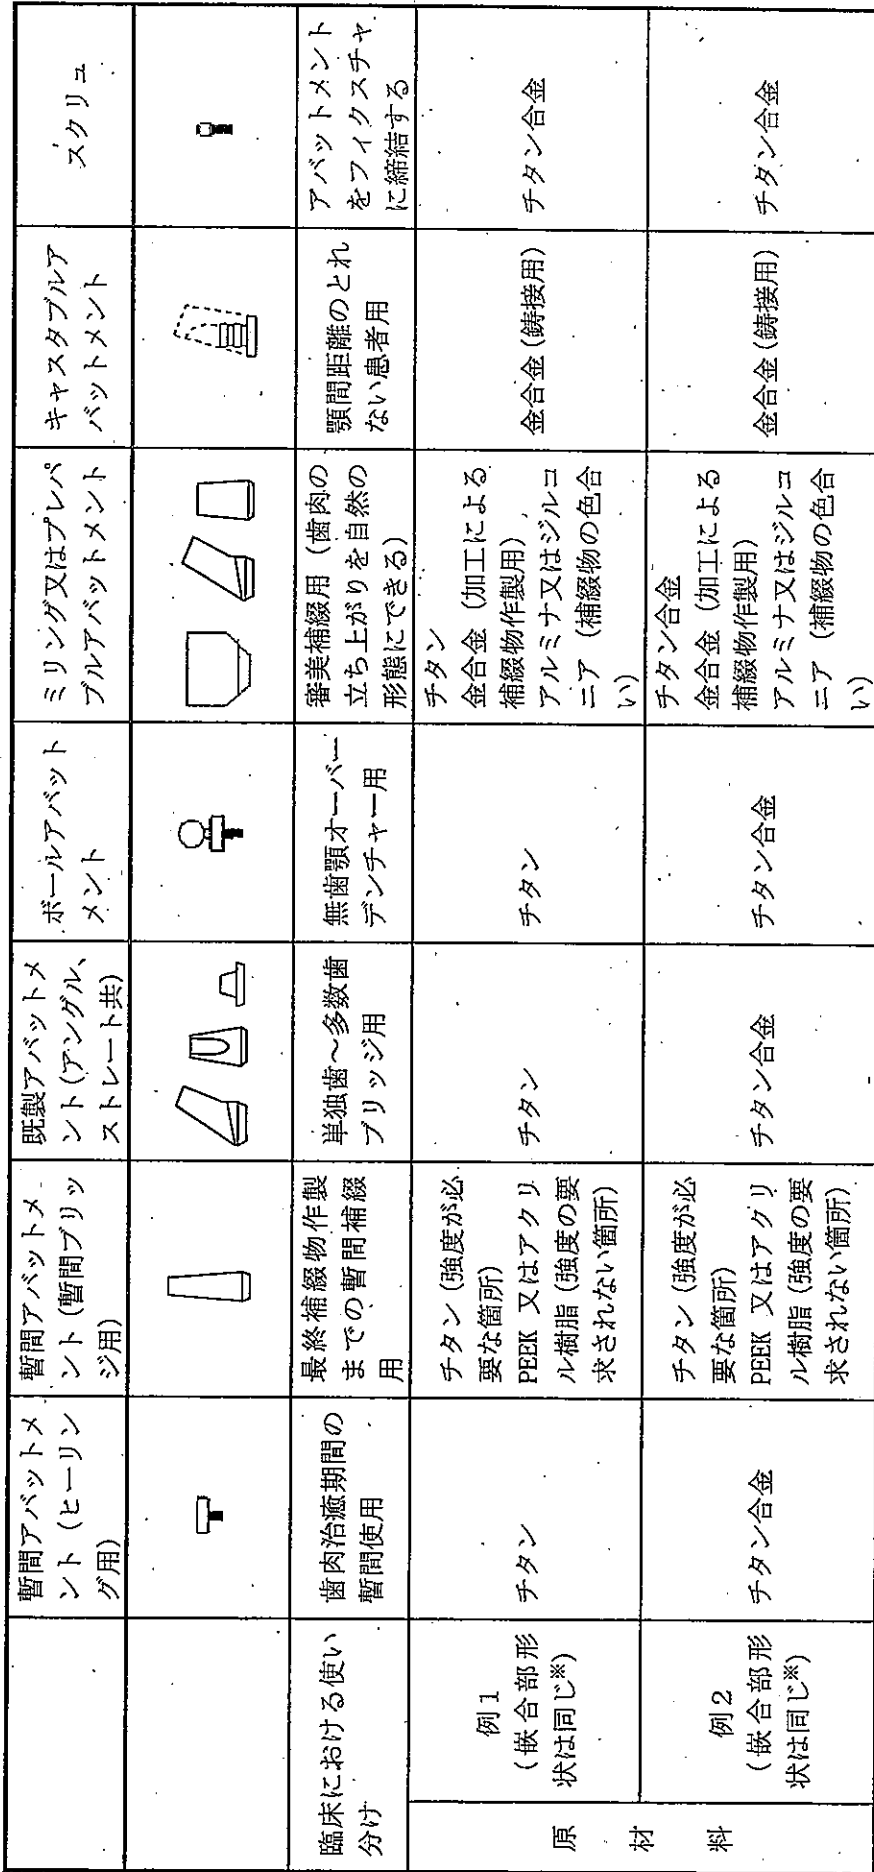 暫間アバットメ
ント（ヒーリン
グ用）
暫間アバットメ
ント(暫間ブリッ
ジ用)
既製アバットメ
ント(アングル、
ストレート共)
ボールアバット
メント
ミリング又はプレパ
ブルアバットメント
キャスタブルア
バットメント
スクリュ
臨床における使い
分け
歯肉治癒期間の
暫間使用
最終補綴物作製
までの暫間補綴
用
単独歯～多数歯
ブリッジ用
無歯顎オーバー
デンチャー用
審美補綴用（歯肉の
立ち上がりを自然の
形態にできる）
顎間距離のとれ
ない患者用
アバットメント
をフィクスチャ
に締結する
原材料
例1
(嵌合部形
状は同じ※)
チタン
チタン(強度が必
要な箇所)
PEEK 又はアクリ
ル樹脂(強度の要
求されない箇所)
チタン
チタン
チタン
金合金（加工による
補綴物作製用）
アルミナ又はジルコ
ニア（補綴物の色合
い）
金合金(鋳接用)
チタン合金
例2
(嵌合部形
状は同じ※)
チタン合金
チタン(強度が必
要な箇所)
PEEK 又はアクリ
ル樹脂(強度の要
求されない箇所)
チタン合金
チタン合金
チタン合金
金合金（加工による
補綴物作製用）
アルミナ又はジルコ
ニア（補綴物の色合
い）
金合金(鋳接用)
チタン合金